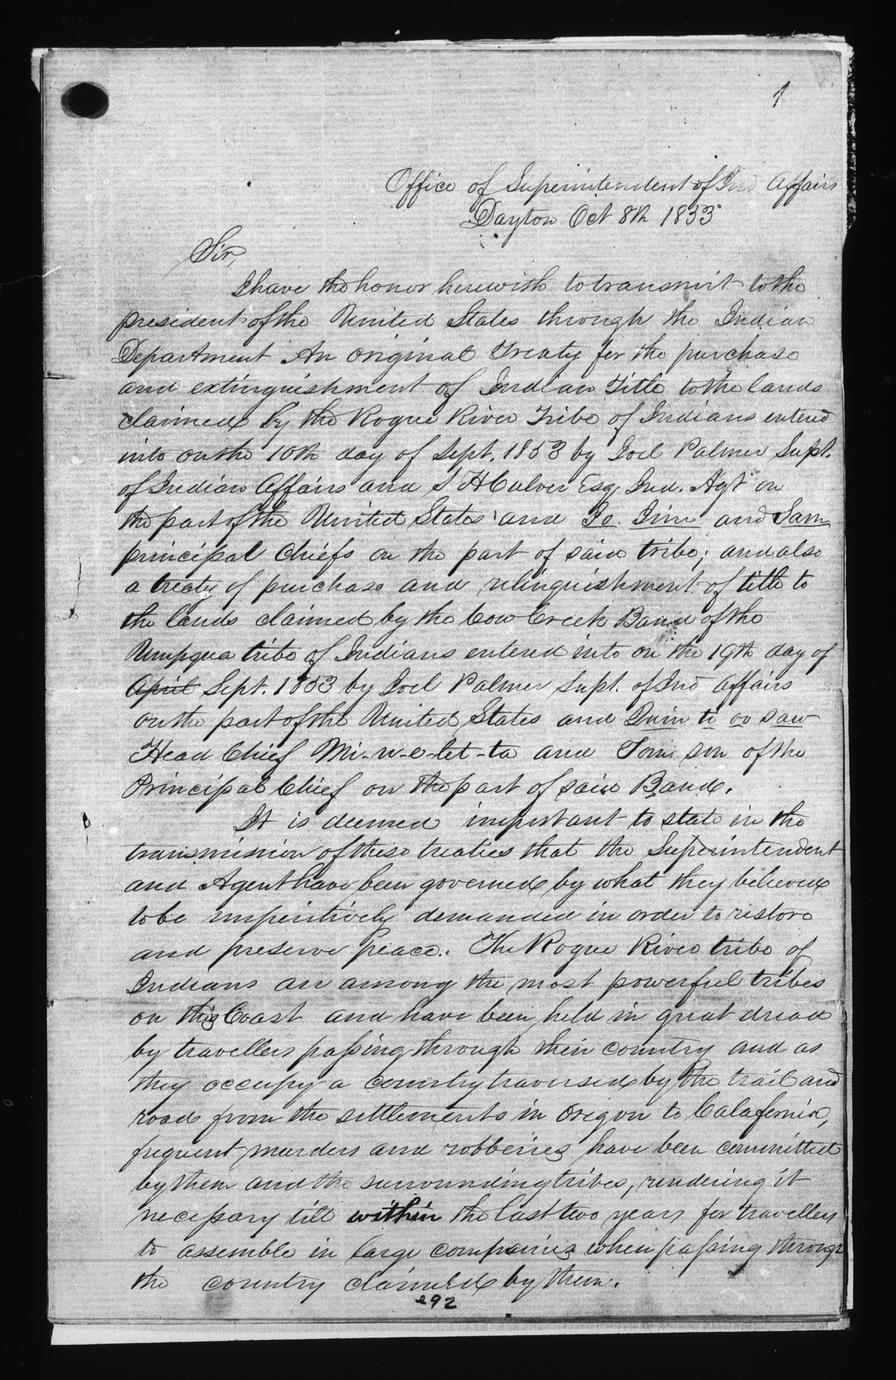 1
Office of Superintendent of Ind Affairs
Dayton Oct 8th 1853
Sir,
I have the honor herewith to transmit to the
president of the United States through the Indian
Department An original Treaty for the purchase
and extinguishment of Indian Title to the lands
claimed by the Rogue River Tribe of Indians entered
into on the 10th day of Sept. 1853 by Joel Palmer Supt.
of Indian Affairs and S H Culver Esq Ind. Agt on
the part of the United States and Jo. Jim and Sam
principal Chiefs on the part of said tribe; and also
a treaty of purchase and relinquishment of title to
the lands claimed by the Cow Creek Band of the
Umpqua tribe of Indians entered into on the 19th day of
April Sept. 1853 by Joel Palmer Supt. of Ind Affairs
on the part of the United States and Quin ti oo saw
Head Chief Mi-n-e-let-ta and Tom son of the
Principal Chief on the part of said Band.
It is deemed important to state in the
transmission of these treaties that the Superintendent
and Agent have been governed by what they believed
to be imperitively demanded in order to restore
and preserve peace. The Rogue River tribe of
Indians are among the most powerful tribes
on this Coast and have been held in great dread
by travellers passing through their country and as
they occupy a country traversed by the trail and
road from the settlements in Oregon to Calafornia,
frequent murders and robberies have been committed
by them and the surrounding tribes, rendering it
necessary till within the last two years for travellers
to assemble in large companies when passing through
the country claimed by them.
292